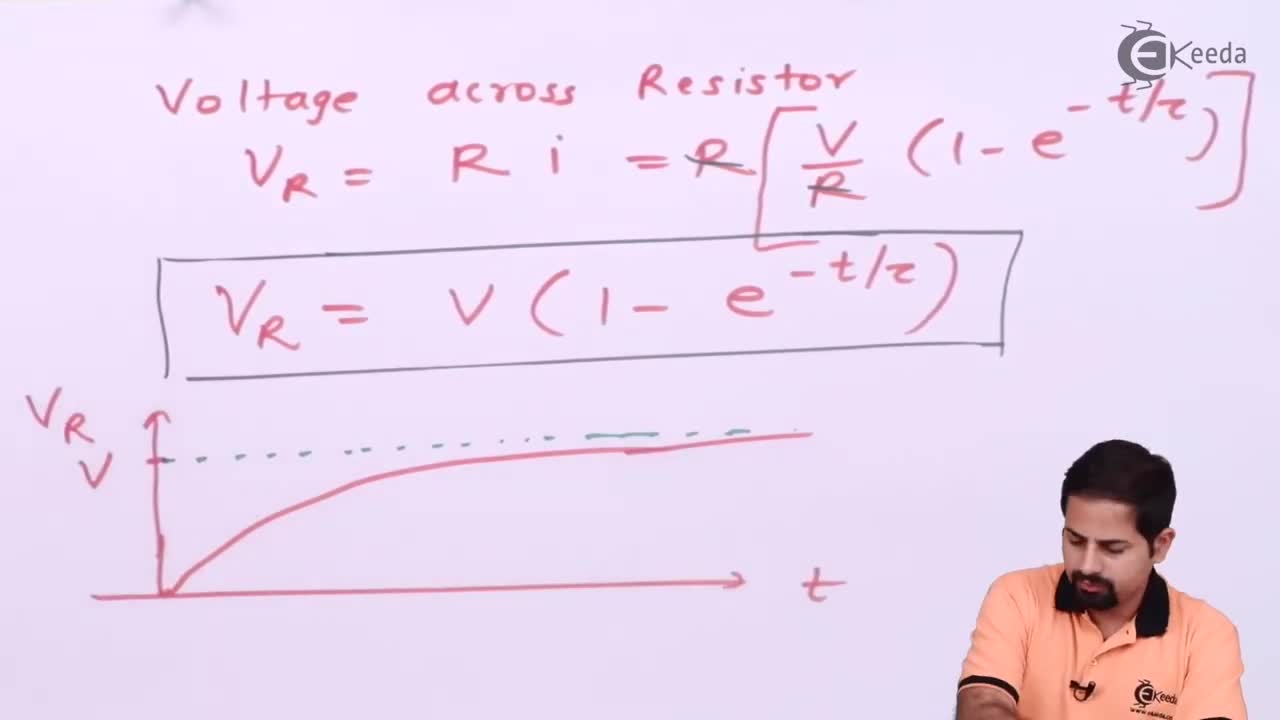 EKeeda
Voltage across Resistor
V_R = R i = R [ V/R (1 - e^{-t/τ}) ]
V_R = V (1 - e^{-t/τ})
V_R
V
t
EKeeda